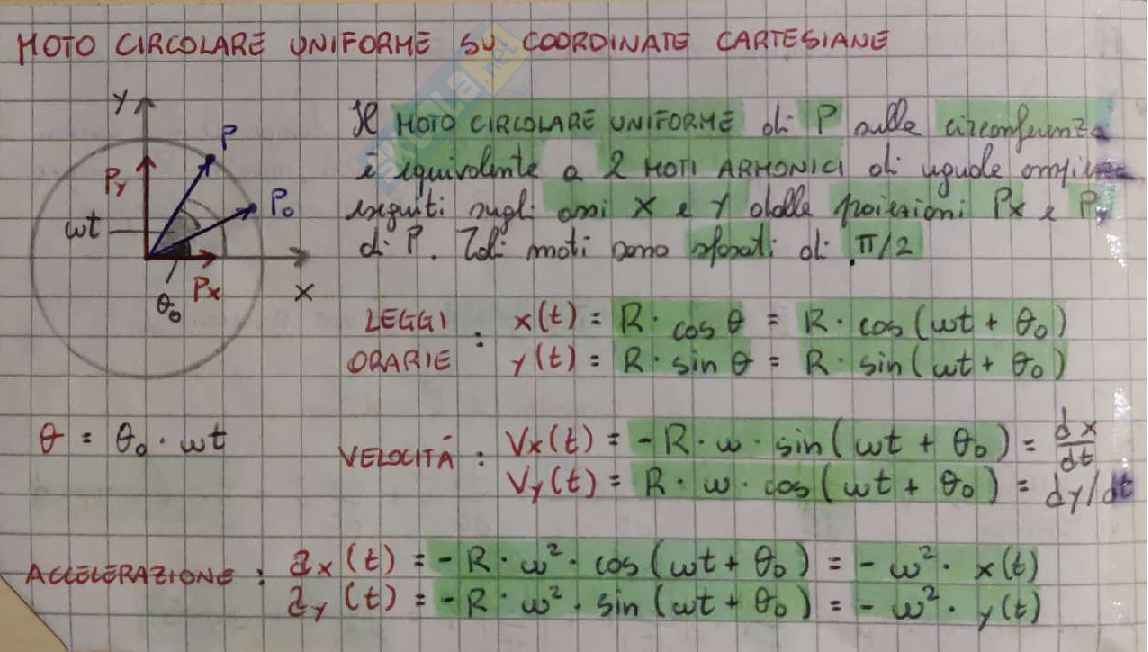 MOTO CIRCOLARE UNIFORME SU COORDINATE CARTESIANE
Y
P
Py
P₀
ωt
Px
X
θ₀
Il MOTO CIRCOLARE UNIFORME di P sulla circonferenza
è equivalente a 2 MOTI ARMONICI di uguale
eseguiti sugli assi X e Y dalle proiezioni Px e Py
di P. Tali moti sono sfasati di π/2
LEGGI ORARIE :
x(t) = R · cos θ = R · cos (ωt + θ₀)
y(t) = R · sin θ = R · sin (ωt + θ₀)
θ = θ₀ · ωt
VELOCITÀ :
Vx(t) = -R · ω · sin (ωt + θ₀) = dx/dt
Vy(t) = R · ω · cos (ωt + θ₀) = dy/dt
ACCELERAZIONE :
ax(t) = -R · ω² · cos (ωt + θ₀) = -ω² · x(t)
ay(t) = -R · ω² · sin (ωt + θ₀) = -ω² · y(t)